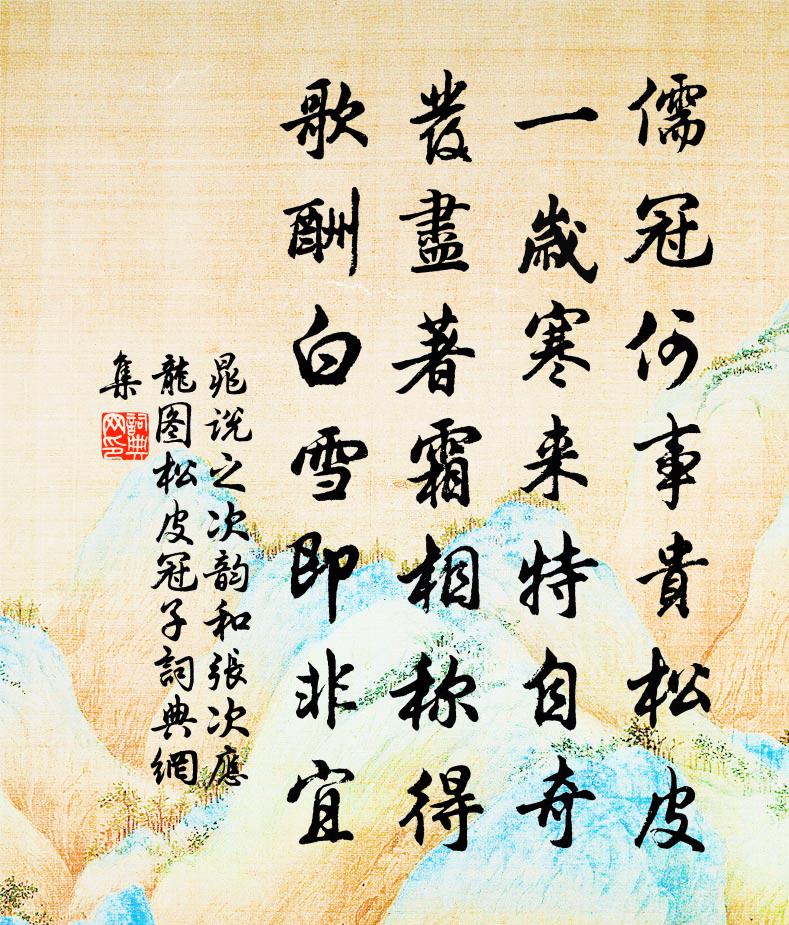 儒冠何事貴松皮
一歲寒来特自奇
髮盡著霜相称得
歌酬白雪即非宜
晁說之次韵和张次應
龍图松皮冠子詞典網
集
詞典
网印